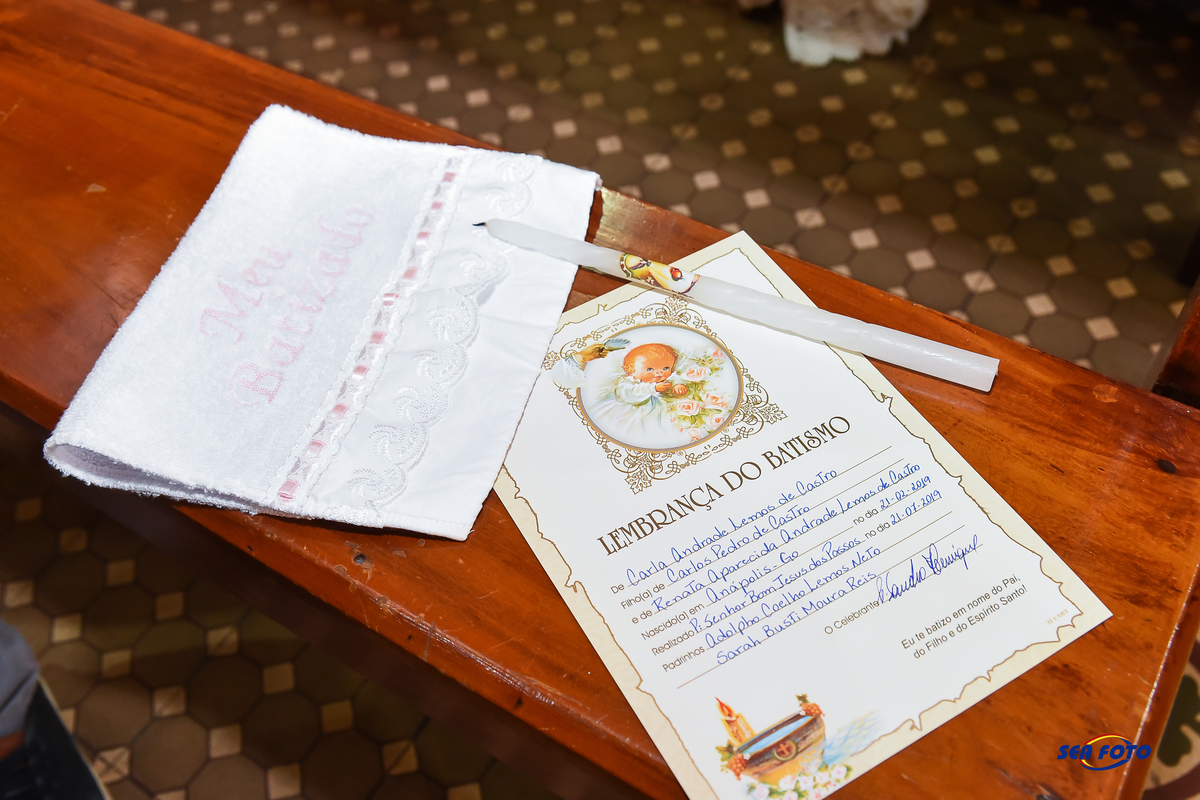 Meu
Batizado
LEMBRANÇA DO BATISMO
De Carla Andrade Lemos de Castro
Filho(a) de Carlos Pedro de Castro
e de Renata Aparecida Andrade Lemos de Castro
Nascido(a) em Anápolis - Go no dia 21-02-2019
Realizado P. Senhor Bom Jesus dos Passos no dia 21-07-2019
Padrinhos Adolpho Coelho Lemos Neto
Sarah Busti Moura Reis
O Celebrante
Eu te batizo em nome do Pai,
do Filho e do Espírito Santo!
SER FOTO